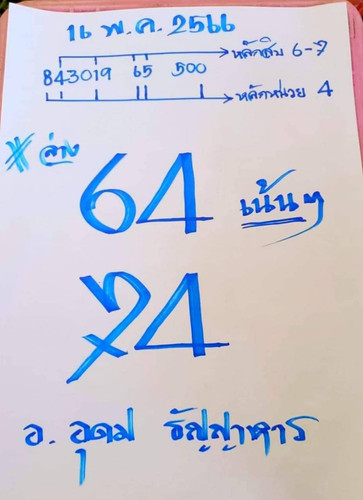 16 พ.ค. 2566
หลักสิบ 6-7
843019 65 500
หลักหน่วย 4
* ล่าง
64 เน้นๆ
74
อ. อุดม ธัญญาหาร